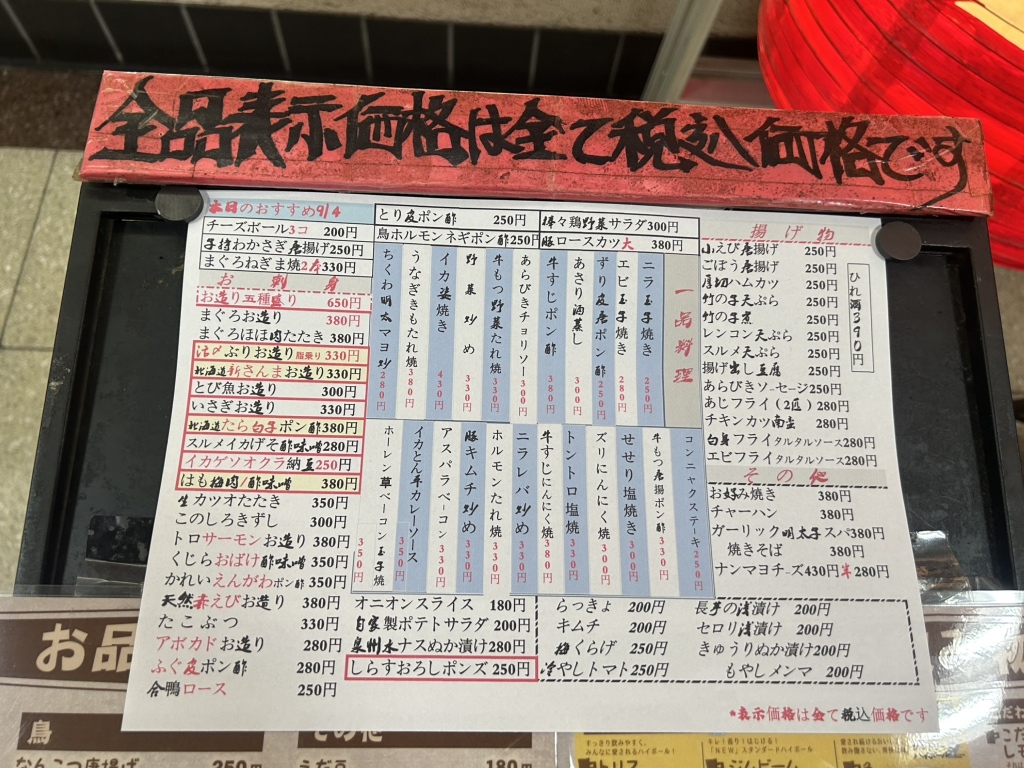 全品表示価格は全て税込価格です
本日のおすすめ9/4
チーズボール3コ 200円
子持わかさぎ唐揚げ250円
まぐろねぎま焼2本330円
とり皮ポン酢 250円
鳥ホルモンネギポン酢250円
棒々鶏野菜サラダ300円
豚ロースカツ大 380円
お刺身
お造り五種盛り 650円
まぐろお造り 380円
まぐろほほ肉たたき 380円
活〆ぶりお造り 脂乗り 330円
北海道新さんまお造り330円
とび魚お造り 300円
いさぎお造り 330円
北海道たら白子ポン酢380円
スルメイカげそ酢味噌280円
イカゲソオクラ納豆250円
はも梅肉/酢味噌 380円
生カツオたたき 350円
このしろきずし 300円
トロサーモンお造り 380円
くじらおばけ酢味噌350円
かれいえんがわポン酢350円
天然赤えびお造り 380円
たこぶつ 330円
アボカドお造り 280円
ふぐ皮ポン酢 280円
合鴨ロース 250円
一品料理
ニラ玉子焼き 250円
エビ玉子焼き 280円
ずり皮唐ポン酢 250円
あさり酒蒸し 300円
牛すじポン酢 380円
あらびきチョリソー 300円
牛もつ野菜たれ焼 330円
野菜炒め 330円
イカ姿焼き 430円
うなぎきもたれ焼 380円
ちくわ明太マヨ炒 280円
コンニャクステーキ 250円
牛もつ唐揚ポン酢 330円
せせり塩焼き 330円
ズリにんにく焼 300円
トントロ塩焼 330円
牛すじにんにく焼 380円
ニラレバ炒め 330円
ホルモンたれ焼 330円
豚キムチ炒め 330円
アスパラベーコン 330円
イカとん平カレーソース 350円
ホーレン草ベーコン玉子焼 350円
揚げ物
小えび唐揚げ 250円
ごぼう唐揚げ 250円
厚切ハムカツ 250円
竹の子天ぷら 250円
竹の子煮 250円
レンコン天ぷら 250円
スルメ天ぷら 250円
揚げ出し豆腐 250円
あらびきソーセージ250円
あじフライ(2匹)280円
チキンカツ南蛮 280円
白身フライタルタルソース280円
エビフライタルタルソース280円
ひれ酒390円
その他
お好み焼き 380円
チャーハン 380円
ガーリック明太子スパ380円
焼きそば 380円
ナンマヨチーズ430円半280円
オニオンスライス 180円
自家製ポテトサラダ 200円
泉州水ナスぬか漬け280円
しらすおろしポンズ 250円
らっきょ 200円
キムチ 200円
梅くらげ 250円
冷やしトマト250円
長芋の浅漬け 200円
セロリ浅漬け 200円
きゅうりぬか漬け200円
もやしメンマ 200円
*表示価格は全て税込価格です
お品
鳥
なんこつ唐揚げ 250円
その他
えだ豆 180円
すっきり飲みやすく、
みんなに愛されるハイボール!
トリス
キレ!香り!はじける!
「NEW」スタンダードハイボール
ジムビーム